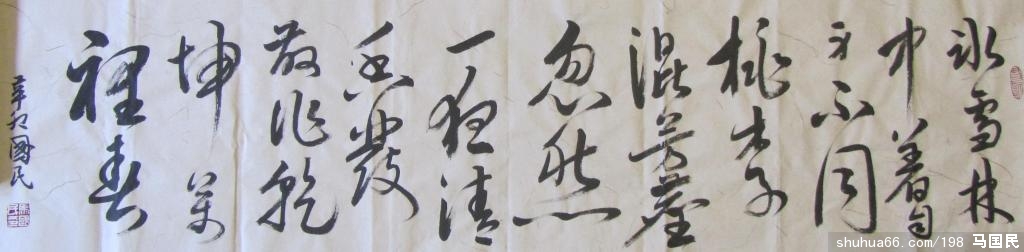 冰雪林
中著此
身不同
桃李
混芳塵
忽然
一夜清
香發
散作乾
坤萬
裡春
辛卯國民
shuhua66.com/198 马国民